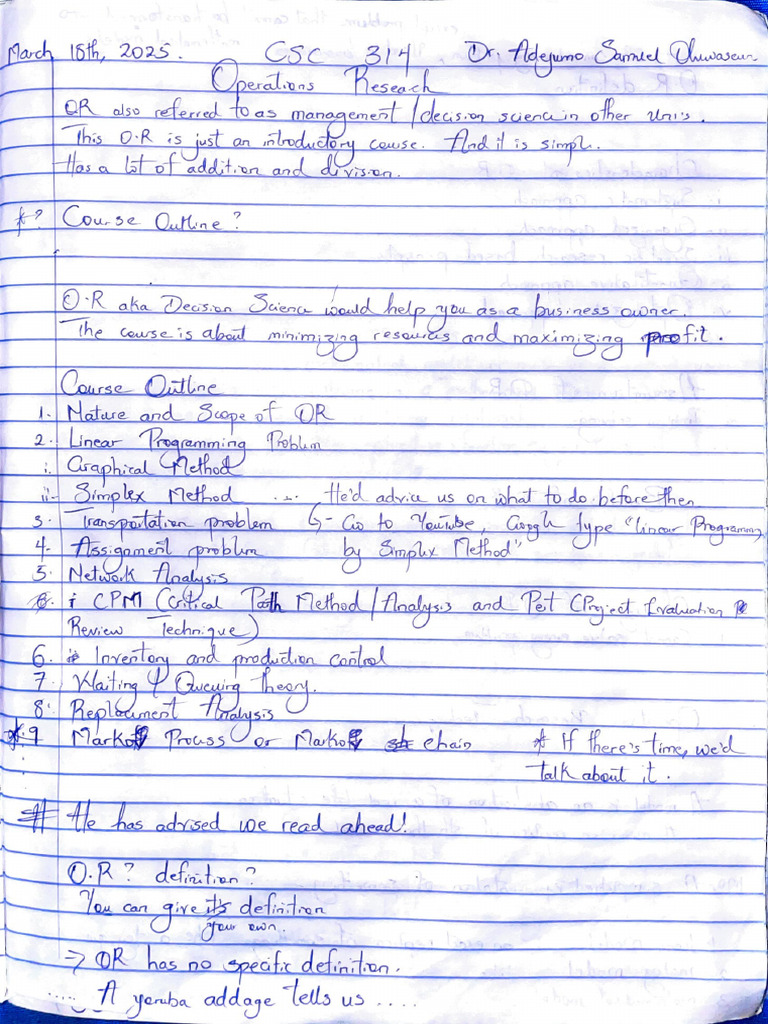 March 18th, 2025. CSC 314 Dr. Adejumo Samuel Oluwaseun
Operations Reseach
OR also referred to as management / decision science in other Uni's.
This O.R is just an introductory course. And it is simple.
Has a lot of addition and division.
*? Course Outline?
O.R aka Decision Science would help you as a business owner.
The course is about minimizing resources and maximizing profit.
Course Outline
1. Nature and Scope of OR
2. Linear Programming Problem
i. Graphical Method
ii. Simplex Method ... He'd advice us on what to do before then
3. Transportation problem ↳ Go to YouTube, Google type "linear Programming
4. Assignment problem by Simplex Method"
5. Network Analysis
i CPM (Critical Path Method / Analysis and Pert (Project Evaluation
Review Technique)
6. Inventory and production control
7. Waiting & Queuing theory.
8. Replacement Analysis
*9 Markov Process or Markov chain * If there's time, we'd
talk about it.
# He has advised we read ahead!
O.R? definition?
You can give it's definition
your own.
⇒ OR has no specific definition.
..... A yoruba addage tells us ....